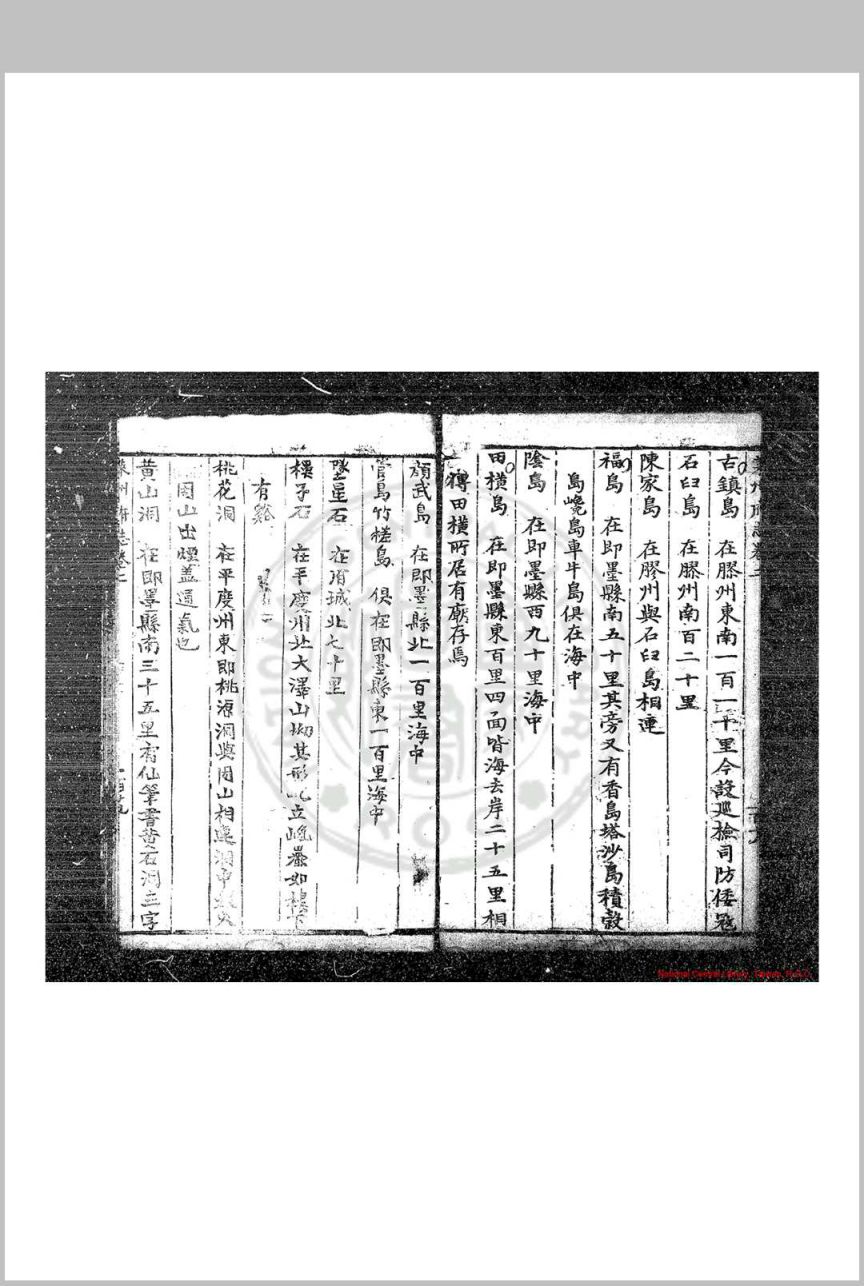 古鎮島　在膠州東南一百二十里今設巡檢司防倭寇
石臼島　在膠州南百二十里
陳家島　在膠州與石臼島相連
福島　在即墨縣南五十里其旁又有香島塔沙島積穀
島巉島車牛島俱在海中
陰島　在即墨縣西九十里海中
田橫島　在即墨縣東百里四面皆海去岸二十五里相
傳田橫所居有廟存焉
顔武島　在即墨縣北一百里海中
管島竹槎島　俱在即墨縣東一百里海中
墜星石　在府城北七十里
樸子石　在平度州北大澤山坳其形立巉巖如樸下
有谿
桃花洞　在平度州東即桃源洞與閣山相洞中
山出煙蓋通氣也
黃山洞　在即墨縣南三十五里有仙筆書黃石洞三字
National Central Library, Taiwan, R.O.C